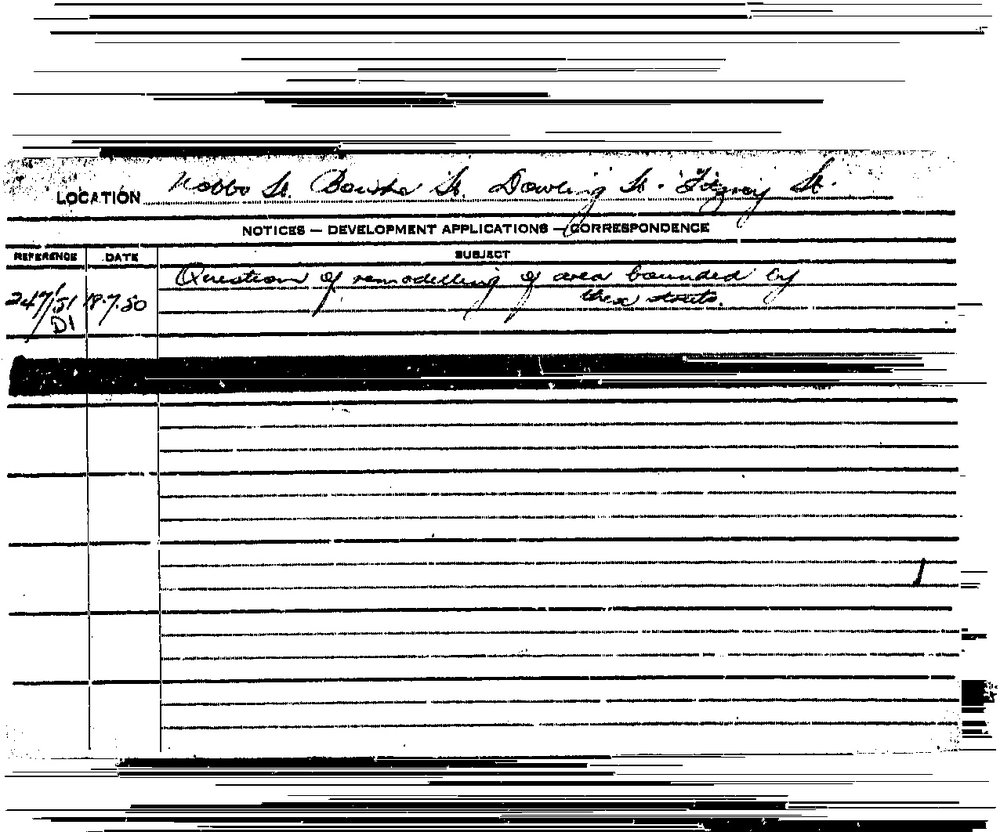 LOCATION Nobbs St. Bourke St. Dowling St. Fitzroy St.
NOTICES — DEVELOPMENT APPLICATIONS — CORRESPONDENCE
REFERENCE DATE SUBJECT
Question of remodelling of area bounded by
247/51 18.7.50 these streets.
D1